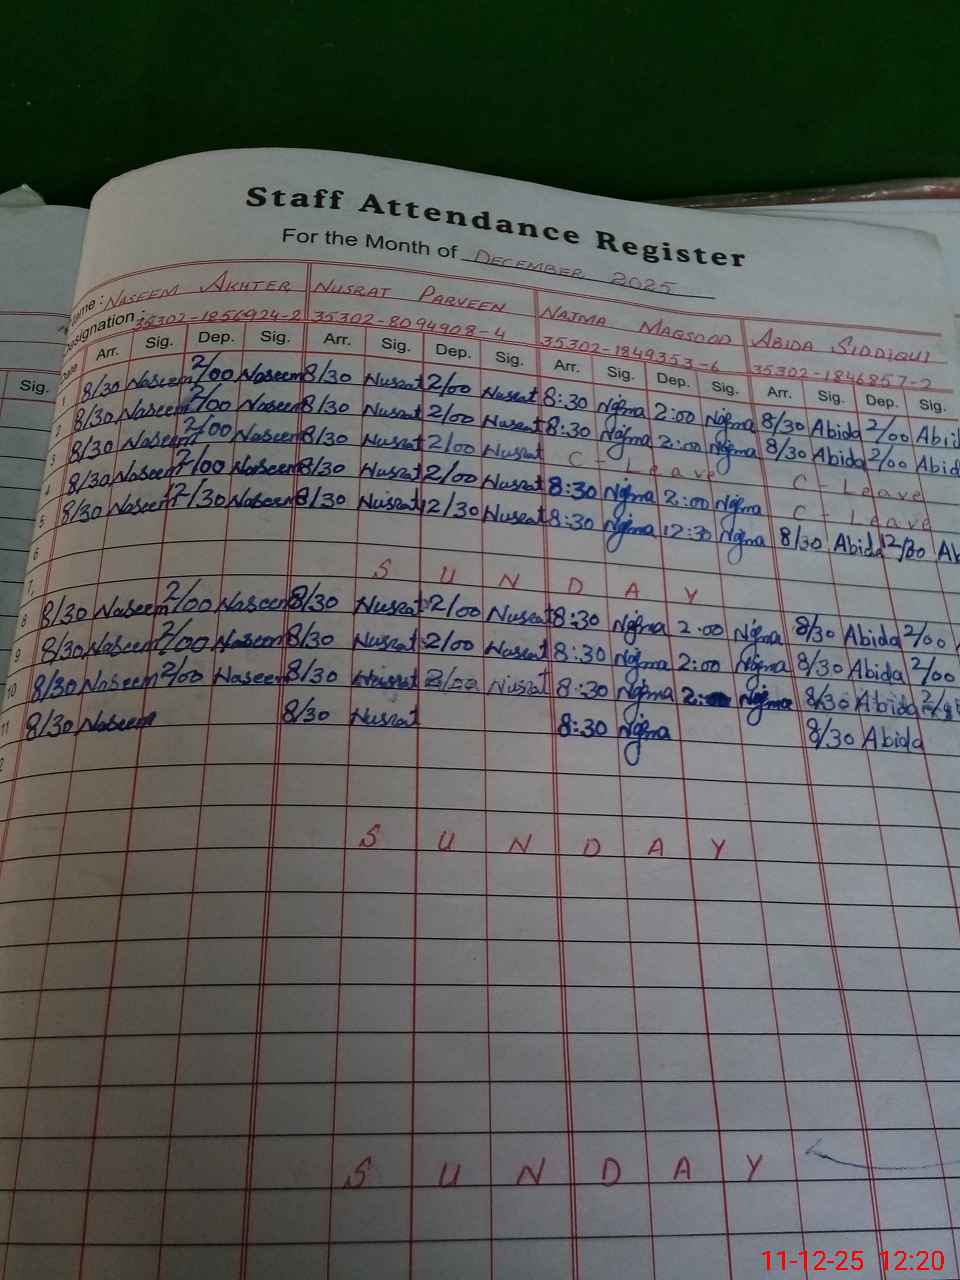 Staff Attendance Register
For the Month of DECEMBER 2025
Name: NASEEM AKHTER NUSRAT PARVEEN NAJMA MAQSOOD ABIDA SIDDIQUI
Designation: 35302-1856924-2 35302-8094908-4 35302-1849353-6 35302-1846857-2
Sig. Date Arr. Sig. Dep. Sig. Arr. Sig. Dep. Sig. Arr. Sig. Dep. Sig. Arr. Sig. Dep. Sig.
1 8/30 Naseem 2/00 Naseem 8/30 Nusrat 2/00 Nusrat 8:30 Najma 2:00 Najma 8/30 Abida 2/00 Abid
2 8/30 Naseem 2/00 Naseem 8/30 Nusrat 2/00 Nusrat 8:30 Najma 2:00 Najma 8/30 Abida 2/00 Abid
3 8/30 Naseem 2/00 Naseem 8/30 Nusrat 2/00 Nusrat C - Leave C - Leave
4 8/30 Naseem 2/00 Naseem 8/30 Nusrat 2/00 Nusrat 8:30 Najma 2:00 Najma C - Leave
5 8/30 Naseem 12/30 Naseem 8/30 Nusrat 12/30 Nusrat 8:30 Najma 12:30 Najma 8/30 Abida 12/30 Ab
6
7 SUNDAY
8 8/30 Naseem 2/00 Naseem 8/30 Nusrat 2/00 Nusrat 8:30 Najma 2:00 Najma 8/30 Abida 2/00 A
9 8/30 Naseem 2/00 Naseem 8/30 Nusrat 2/00 Nusrat 8:30 Najma 2:00 Najma 8/30 Abida 2/00
10 8/30 Naseem 2/00 Naseem 8/30 Nusrat 2/00 Nusrat 8:30 Najma Najma 8/30 Abida
11 8/30 Naseem 8/30 Nusrat 8:30 Najma 8/30 Abida
2
SUNDAY
SUNDAY
11-12-25 12:20